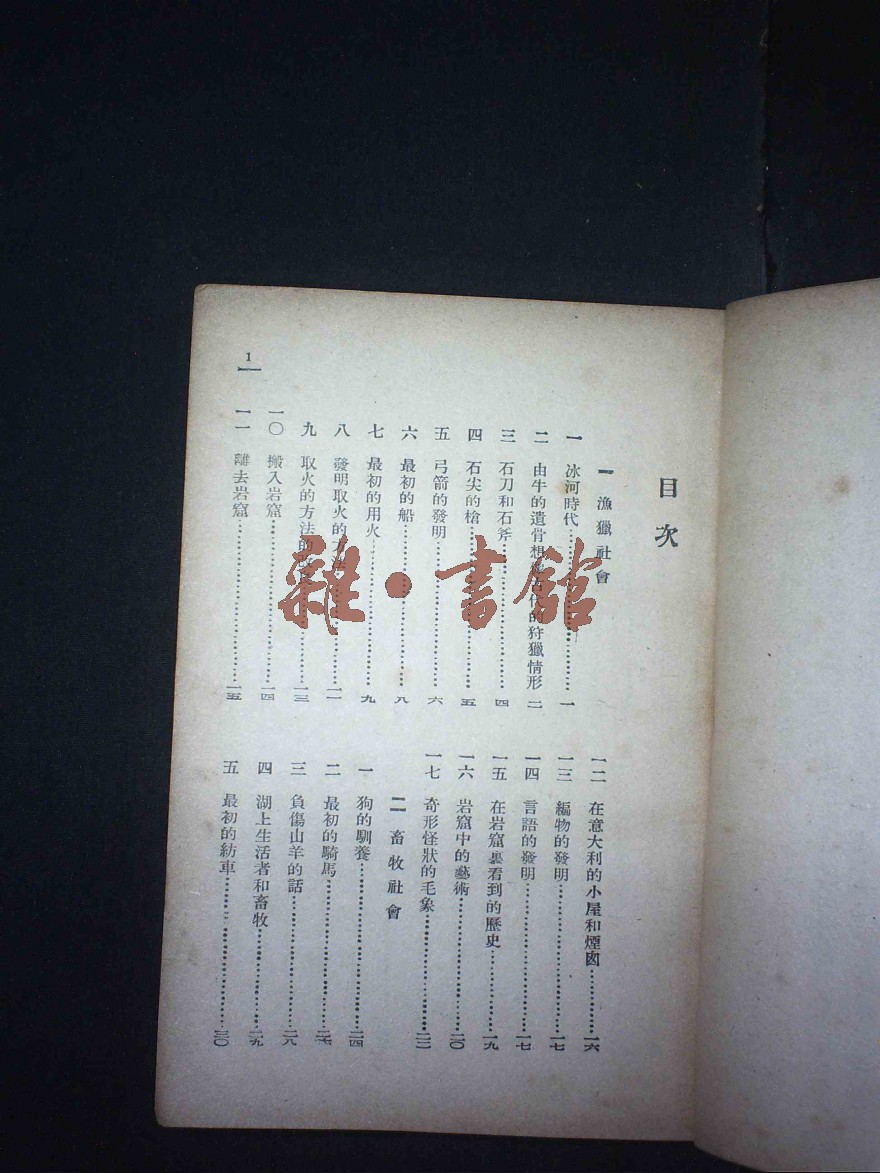 目次
一 漁獵社會
一 冰河時代 一
二 由牛的遺骨想 古代的狩獵情形 二
三 石刀和石斧 四
四 石尖的槍 五
五 弓箭的發明 六
六 最初的船 八
七 最初的用火 九
八 發明取火的方法 一一
九 取火的方法的 一三
一〇 搬入岩窟 一四
一一 離去岩窟 一五
一二 在意大利的小屋和煙囪 一六
一三 編物的發明 一七
一四 言語的發明 一七
一五 在岩窟裏看到的歷史 一九
一六 岩窟中的藝術 二〇
一七 奇形怪狀的毛象 二二
二 畜牧社會
一 狗的馴養 二四
二 最初的騎馬 二七
三 負傷山羊的話 二八
四 湖上生活者和畜牧 二九
五 最初的紡車 三〇
1
雜·書館